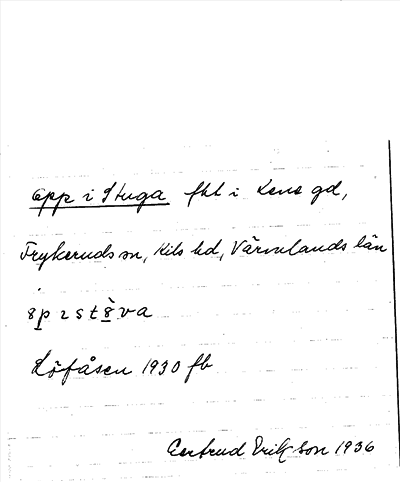 Opp i Stuga fkl i Lene gd,
Frykeruds sn, Kils hd, Värmlands län
8p ɩ s t 8̀ v a
Löfåsen 1930 fb
Gertrud Erikson 1936